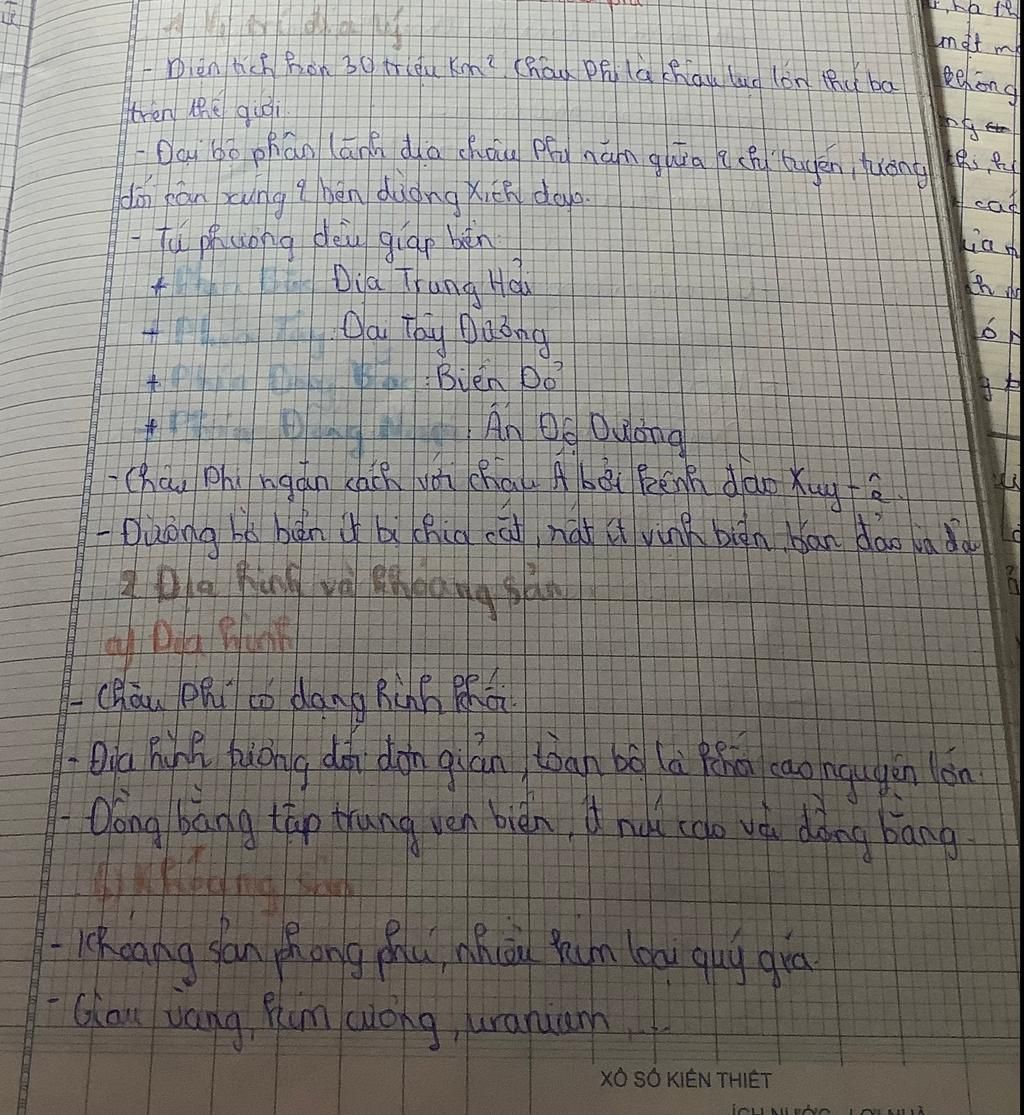 1. Vị trí địa lý
- Diện tích hơn 30 triệu km². Châu Phi là châu lục lớn thứ ba
trên thế giới.
- Đại bộ phận lãnh địa châu Phi nằm giữa 2 chí tuyến, tương
đối cân xứng 2 bên đường Xích đạo.
- Tứ phương đều giáp biển
+ Phía Bắc: Địa Trung Hải
+ Phía Tây: Đại Tây Dương
+ Phía Đông Bắc: Biển Đỏ
+ Phía Đông Nam: Ấn Độ Dương
- Châu Phi ngăn cách với châu Á bởi kênh đào Xuy-ê.
- Đường bờ biển ít bị chia cắt, rất ít vịnh biển, bán đảo và đảo
2. Địa hình và khoáng sản
a) Địa hình
- Châu Phi có dạng hình khối.
- Địa hình tương đối đơn giản, toàn bộ là khối cao nguyên lớn.
- Đồng bằng tập trung ven biển, ít núi cao và đồng bằng.
b) Khoáng sản
- Khoáng sản phong phú, nhiều kim loại quý giá.
- Giàu vàng, kim cương, uranium,...
XỔ SỐ KIẾN THIẾT